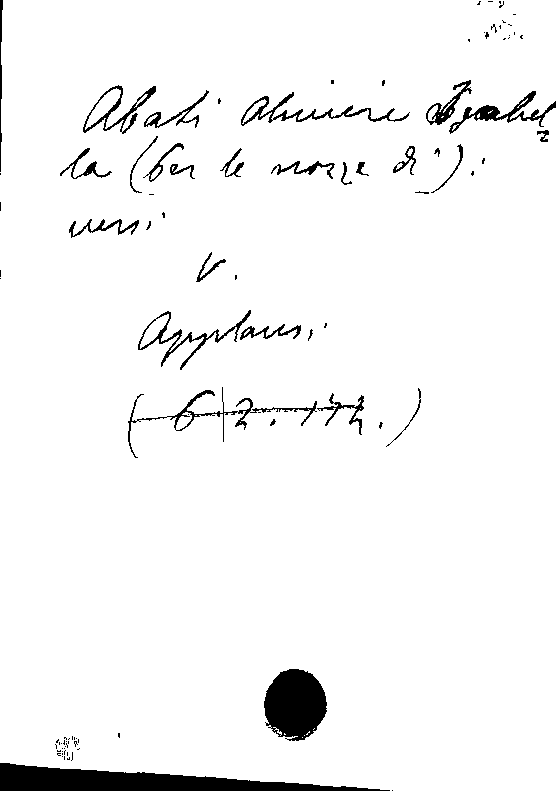 Abati Olivieri Isabel=
la (Per le nozze di):
versi
V.
Applausi
(6.2.172.)